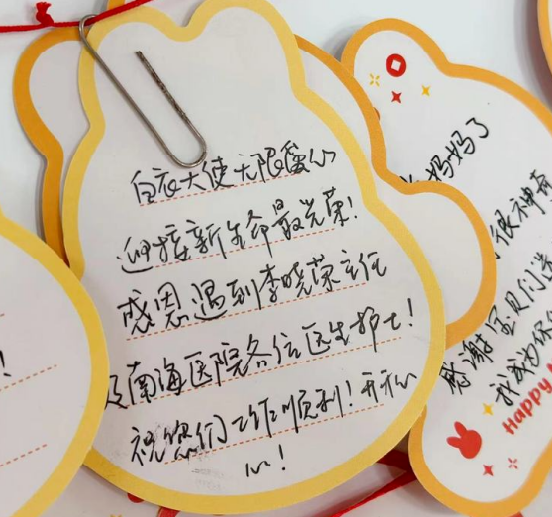 白衣天使无限爱心
迎接新生命最光荣!
感恩遇到李晓荣主任
及南海医院各位医生护士!
祝您们工作顺利!开开心
心!
!
妈妈了
很神奇
感谢宝贝们
我成为你
Happy